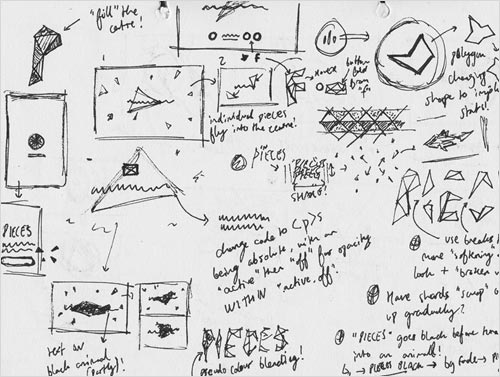 "fill" the
centre!
1
2
individual pieces
fly into the centre!
polygon
changing
shape to
stats!
PIECES
PIECES
SHADE!
PIECES
change code to <p>s
being absolute, with an
"active" then "off" for opacity
WITHIN "active.off".
use
more "softening"
look + "broken
Have shards
up gradually?
"PIECES" goes black before
into an animal!
PIECES BLACK → bg fade →
text on
black animal
(partly)!
PIECES
pseudo colour blending!